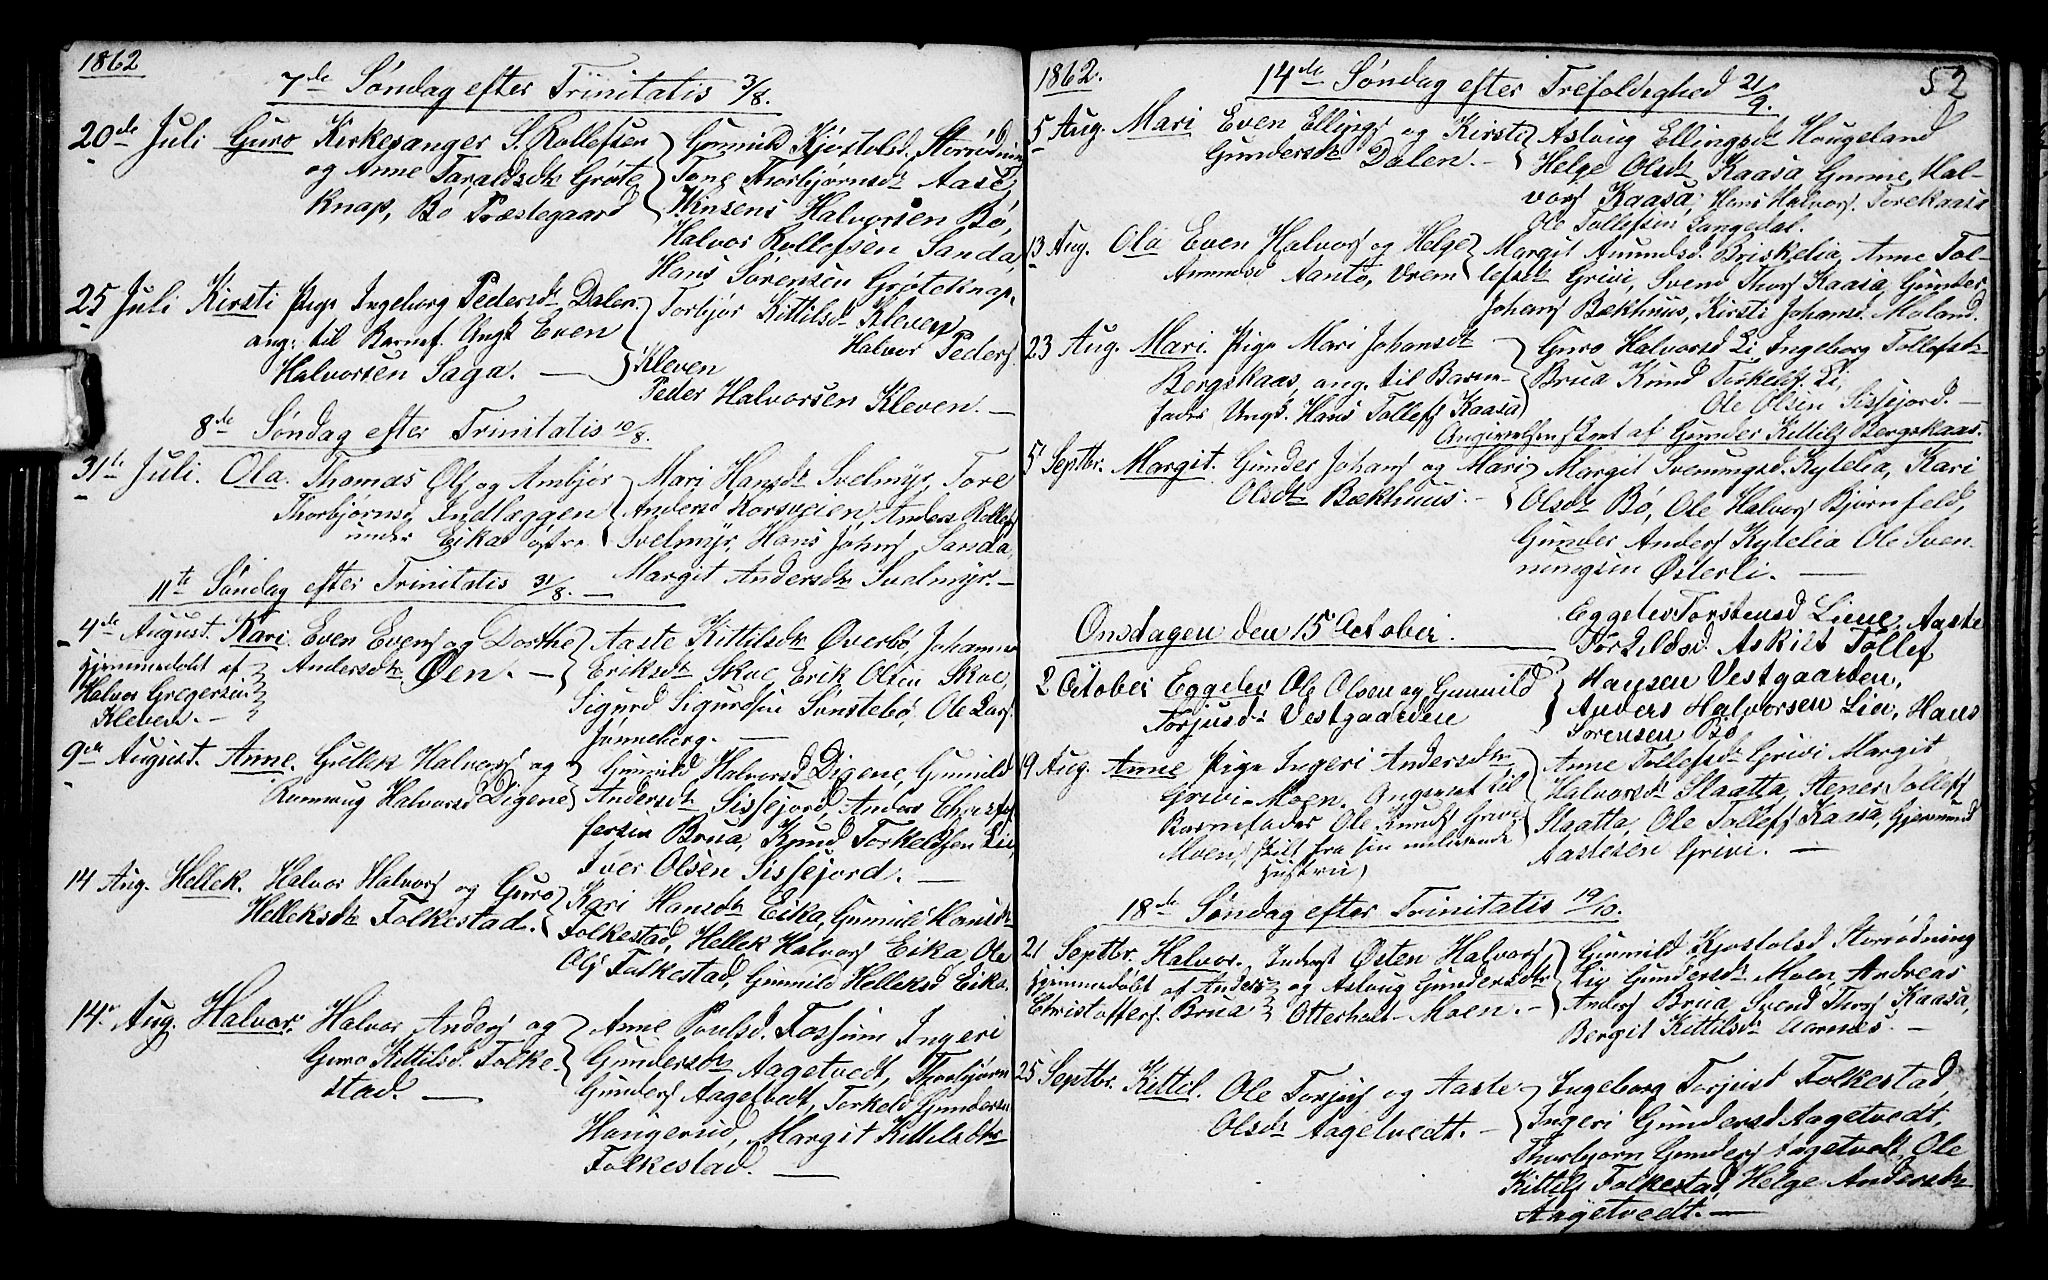 1862
7de Søndag efter Trinitatis 3/8.
20de Juli Guro Kirkesanger S. Rollefsen
og Anne Taraldsdtr Grøte
knap, Bø Præstegaard
Gunnild Kjøstolsd. Storrødning
Tone Thorbjørnsdr Aase,
Halvorsen Bø,
Halvor Rollefsen Sanda,
Hans Sørensen Grøteknap.
25 Juli Kirsti Pige Ingeborg Pedersdr Dalen
ang. til Barnef. Ungk Even
Halvorsen Saga. —
Torbjør Kittilsdr Kleven
Halvor Peders
Kleven
Peder Halvorsen Kleven. —
8de Søndag efter Trinitatis 10/8.
31te Juli. Ola. Thomas Ols og Ambjør
Thorbjørnsd, Indlæggen
under Eika østre
Mari Hansdr Svelmyr, Tore
Andersd Korsveien, Anders Rollefs
Svelmyr, Hans Johns Sanda,
Margit Andersdtr Svelmyr. —
11te Søndag efter Trinitatis 31/8. —
4de August. Kari. Even Evens og Dorthe
Andersdtr Øen. —
hjemmedøbt af
Halvor Gregersen
Kleven. —
Aaste Kittilsdtr Øverbø, Johanne
Eriksdtr Skoe, Erik Olsen Skoe,
Sigurd Sigurdsen Sunstebø, Ole Lars.
Jønneberg. —
9de August. Anne. Gullek Halvors og
Ramnug Halvorsd Digene
Gunnild Halvorsd Digene, Gunuld
Andersdtr Sissejord, Anders Christof
fersen Brua, Knud Torkeldsen Lie,
Iver Olsen Sissejord. —
14 Aug. Hellek. Halvor Halvors og Guro
Helleksdtr Folkestad.
Kari Hansdtr Eika, Gunnild Hansdtr
Folkestad, Hellek Halvors Eika, Ole
Ols Folkestad, Gunnild Helleksd Eika.
14. Aug. Halvor. Halvor Anders og
Guro Kittilsd. Folke-
stad. —
Anne Poulsd. Fossum Ingeri
Gundersdtr Aagetvedt, Thorbjørn
Gunders Aagetvedt, Torkeld Gundersen
Haugerud, Margit Kittilsdtr
Folkestad. —
1862.
52
14de Søndag efter Trefoldighed 21/9.
5 Aug. Mari Even Ellings og Kirsti
Gundersdtr Dalen. —
Aslaug Ellingsdr Haugeland
Helge Olsdr Kaasa Gunne Hal-
vors Kaasa, Hans Halvors. Torekaasa
Ole Tollefsen Langedal.
13 Aug. Ola Even Halvors og Helge
Amunsd Aanto, Vrem
Margit Amundsd. Briskelia, Anne Tol-
lefsdr Grivi, Svend Thors Kaasa, Gunder
Johans Bækhuus, Kirsti Johansd. Moland.
23 Aug. Mari. Pige Mari Johansdtr
Bergskaas, ang. til Barne-
fader Ungk. Hans Tollefs Kaasa
Guro Halvorsd Li Ingeborg Tollefsdr
Brua Knud Torkelsf. Li,
Ole Olsen Sissejord. —
Angivelsen skeet af Gunder Kittils Bergskaas.
5 Septbr. Margit. Gunder Johans og Mari
Olsdtr Bækhuus. —
Margit Svenungsd. Kytelia, Kari
Olsdtr Bø, Ole Halvors Bjørnfeld,
Gunder Anders Kytelia Ole Sven-
nungsen Østerli. —
Onsdagen den 15 October.
2 October Eggelev Ole Olsen og Gunnild
Torjusdr Vestgaarden
Eggelev Torstensd Liene, Aaste
Torkildsd. Askilt Tollef
Hansen Vestgaarden,
Anders Halvorsen Lien, Hans
Sorensen Bø
19 Aug. Anne Pige Ingeri Andersdtr
Grivi-Moen. Angivet til
Barnefader Ole Knuds Grivi
Moen, (skilt fra sin
Hustru)
Anne Tollefsdr Grivi Margit
Halvorsdr Slaatta, Stener Tollefs
Slaatta, Ole Tollefs Kaasa, Gjermund
Aastesen Grivi. —
18de Søndag efter Trinitatis 19/10.
21 Septbr. Halvor. Inderst Østen Halvors
og Aslaug Gundersdtr
Otterholt-Moen. —
hjemmedøbt af Anders
Christoffers. Brua
Gunnild Kjøstolsd Storrødning
Liv Gundersdr Moen, Andreas
Anders Brua, Svend Thors Kaasa,
Bergit Kittilsdr Aarnes. —
25 Septbr. Kittil. Ole Torjus og Aaste
Olsdtr Aagetvedt. —
Ingeborg Torjusd Folkestad,
Ingeri Gundersd Aagetvedt,
Thorbjørn Gunders Aagetvedt, Ole
Kittils Folkestad, Helge Andersdtr
Aagetvedt. —